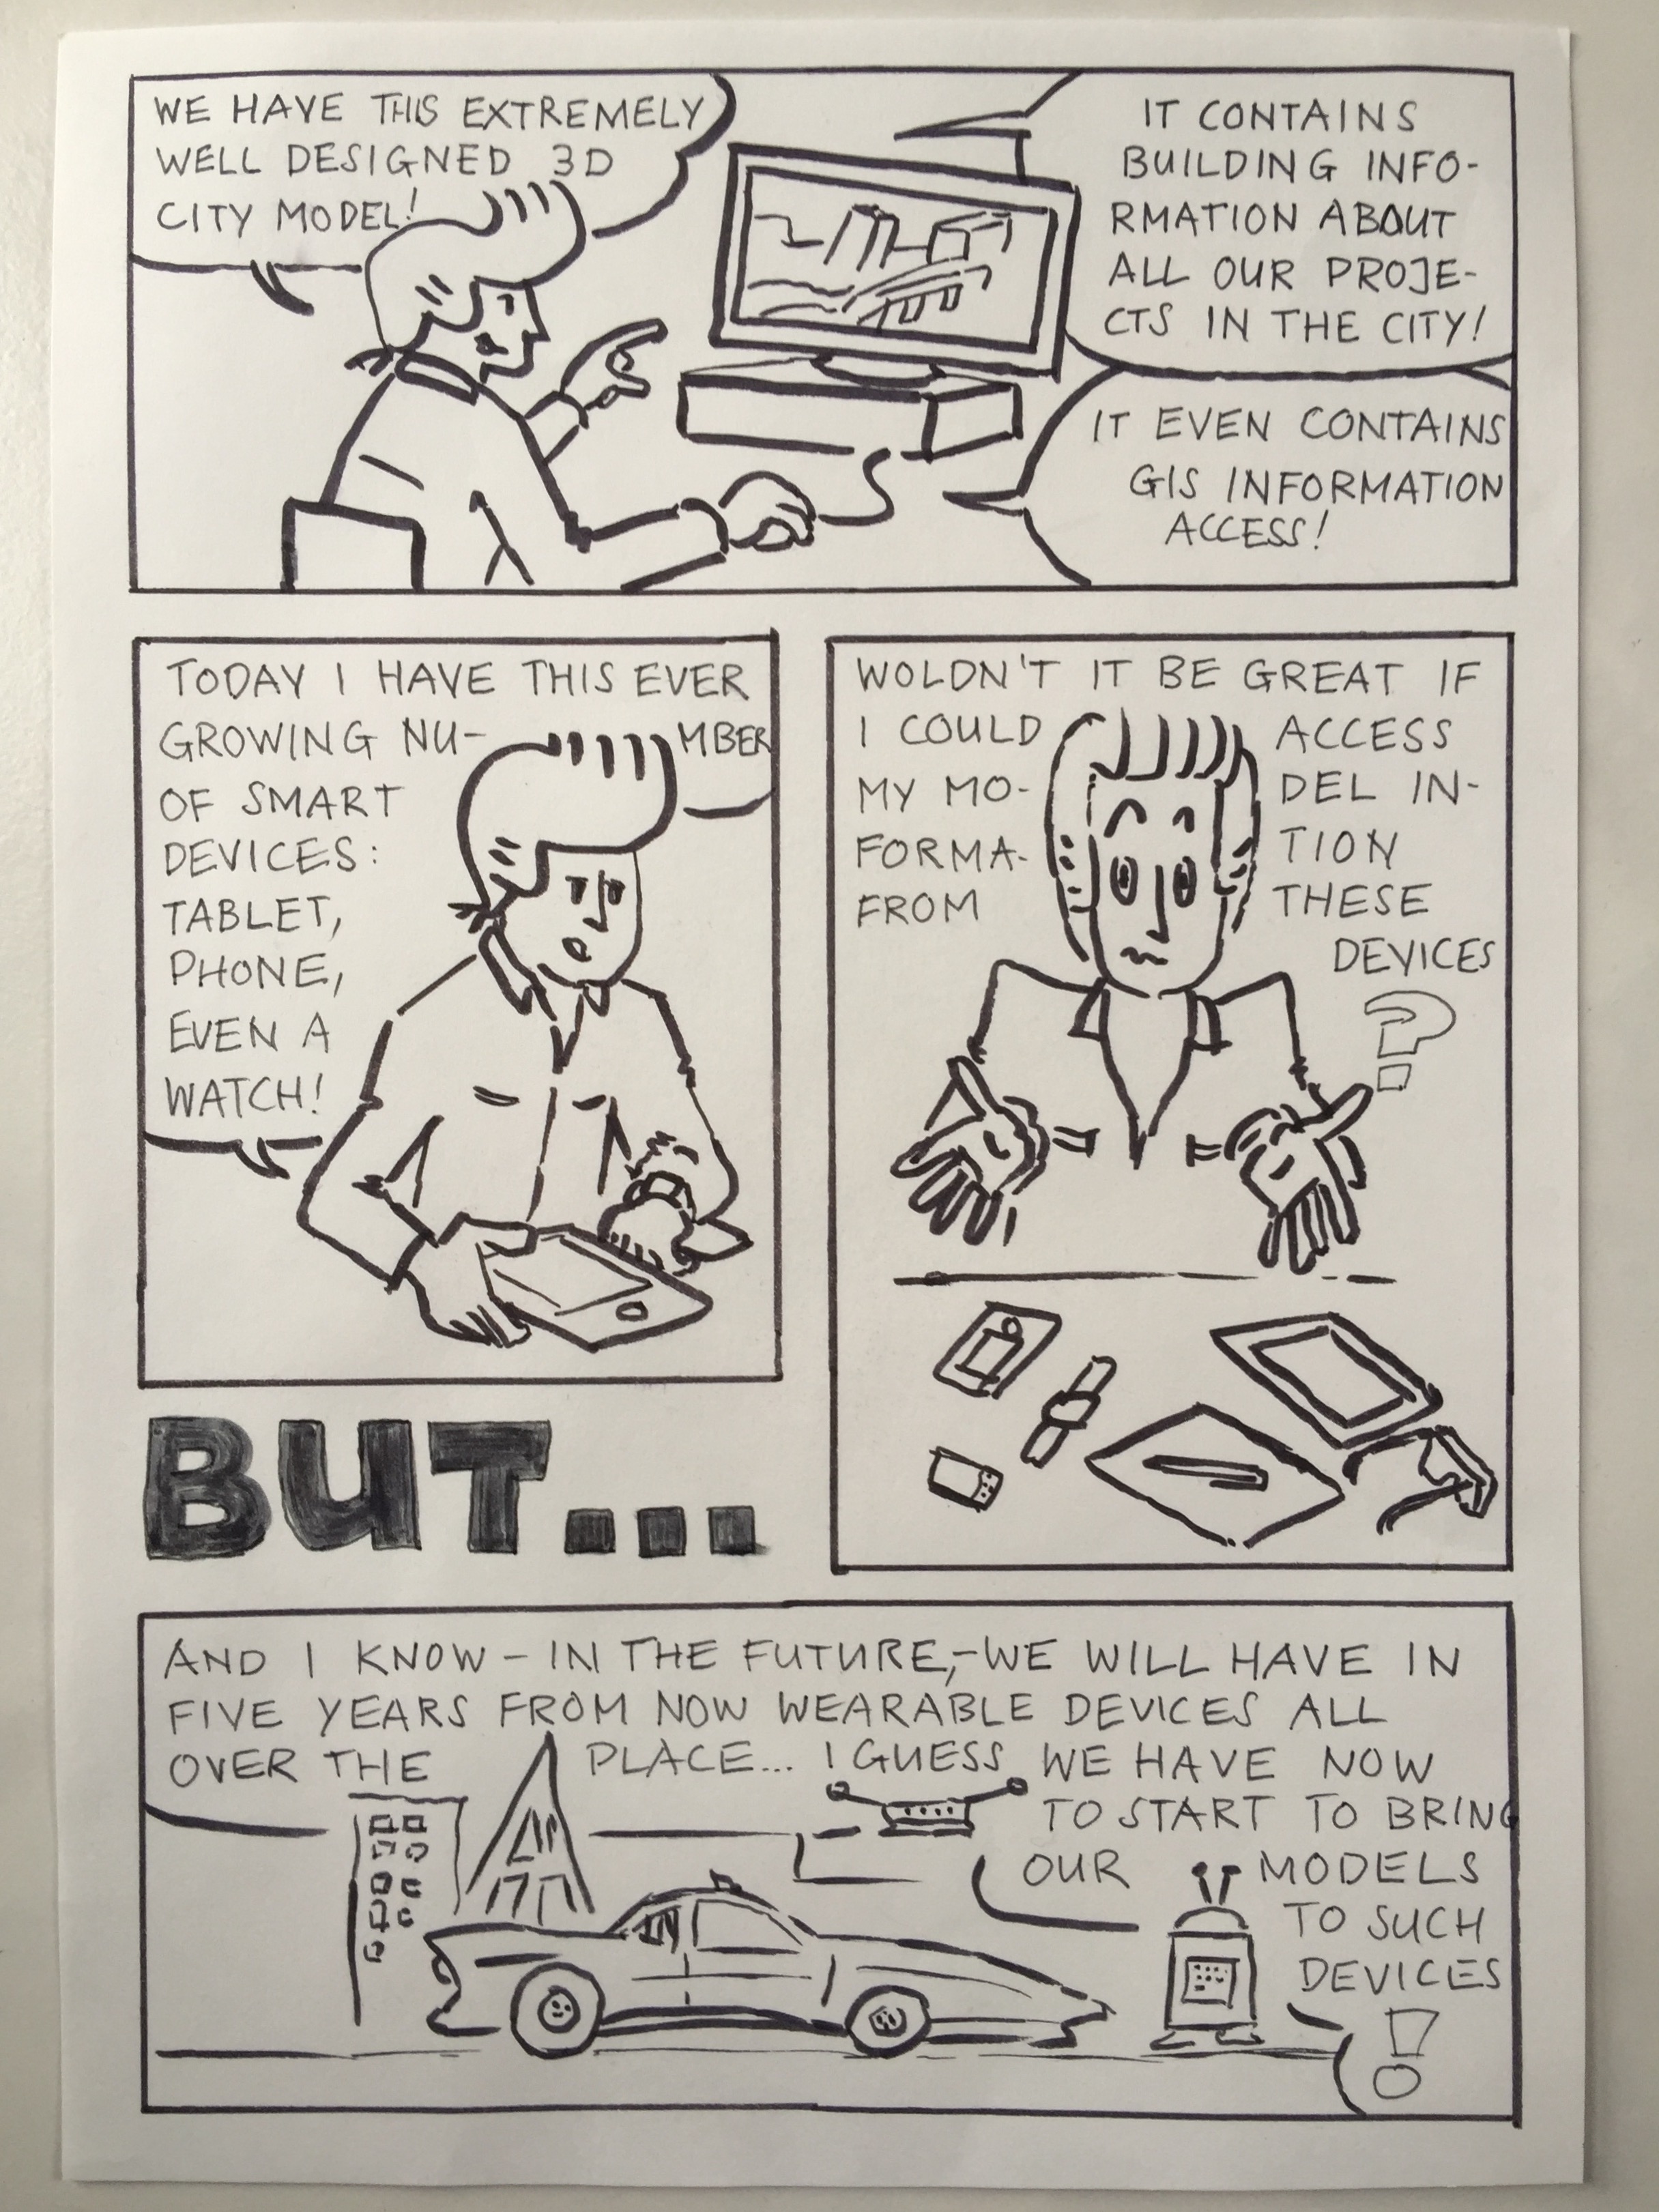 WE HAVE THIS EXTREMELY
WELL DESIGNED 3D
CITY MODEL!
IT CONTAINS
BUILDING INFO-
RMATION ABOUT
ALL OUR PROJE-
CTS IN THE CITY!
IT EVEN CONTAINS
GIS INFORMATION
ACCESS!
TODAY I HAVE THIS EVER
GROWING NU- MBER
OF SMART
DEVICES:
TABLET,
PHONE,
EVEN A
WATCH!
BUT...
WOLDN'T IT BE GREAT IF
I COULD ACCESS
MY MO- DEL IN-
FORMA- TION
FROM THESE
DEVICES
?
AND I KNOW - IN THE FUTURE,- WE WILL HAVE IN
FIVE YEARS FROM NOW WEARABLE DEVICES ALL
OVER THE PLACE... I GUESS WE HAVE NOW
TO START TO BRING
OUR MODELS
TO SUCH
DEVICES
!